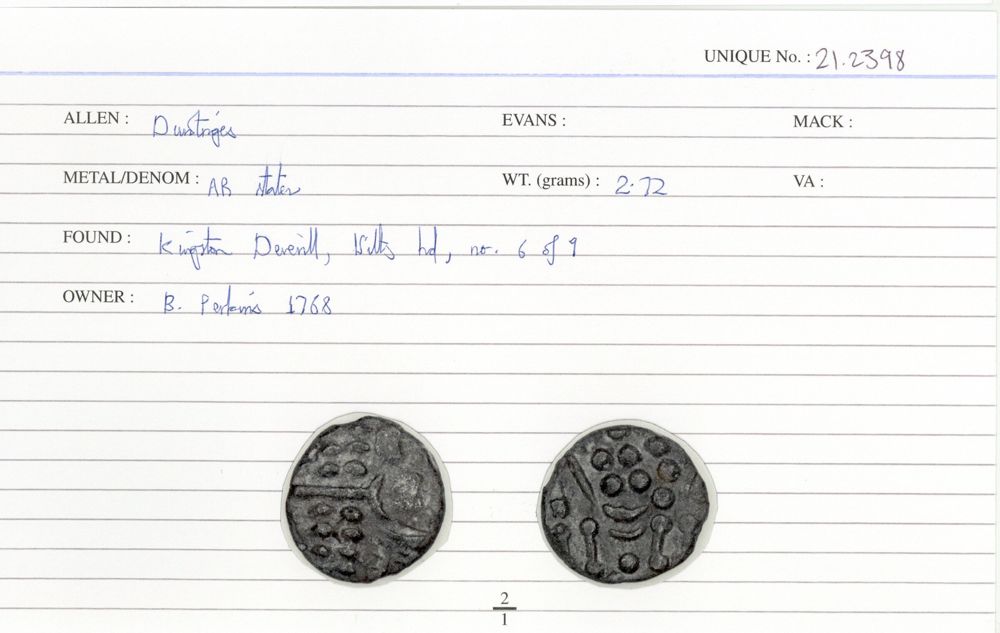 UNIQUE No. : 21.2398
ALLEN : Durotriges EVANS : MACK :
METAL/DENOM : AR stater WT. (grams) : 2.72 VA :
FOUND : Kingston Deverill, Wilts hd, no. 6 of 9
OWNER : B. Perkins 1768
2
1